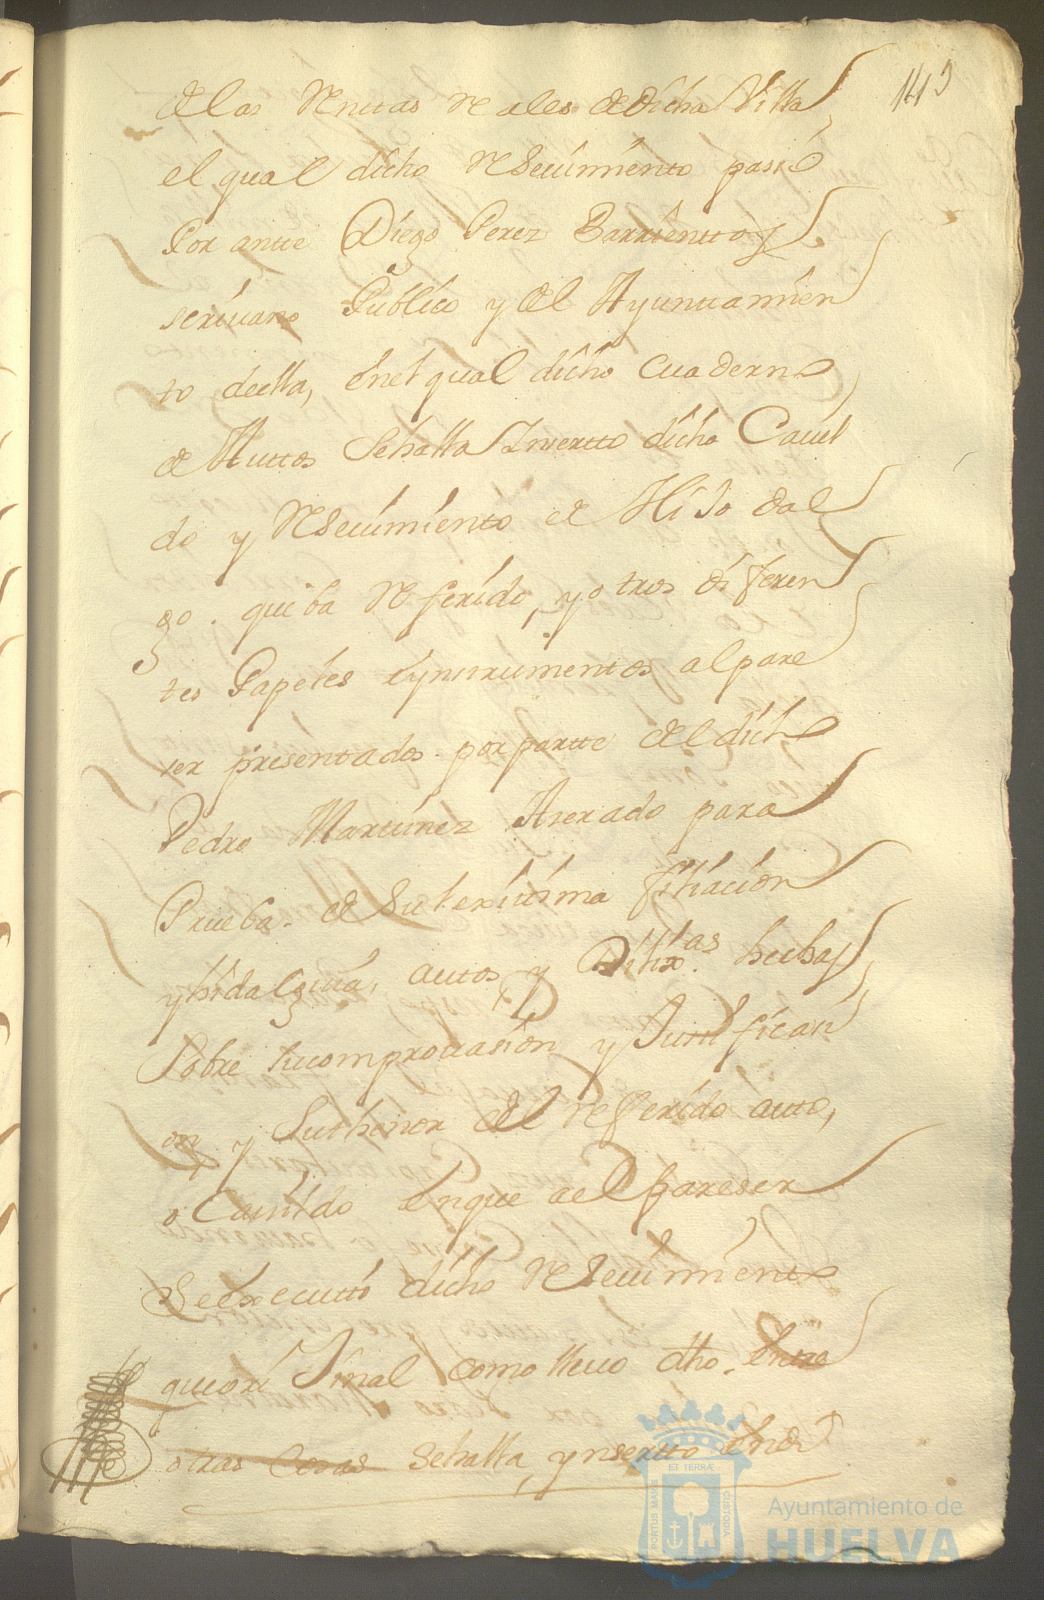 143
de las Rentas Reales de dicha Villa
el qual dicho Resevimiento passó
Por ante Diego Perez Barrientos
scrivano Publico y del Ayuntamien
to deella, en el qual dicho Cuaderno
de Auttos Sehalla Ynsertto dicho Cavil
do y Resevimiento de Hijo dal
go. que ba Referido, y otros diferen
tes Papeles eynstrumentos al pare
ser presentados por partte del dicho
Pedro Martinez para
Prueba de su lexitima filiación
yhidalguia, autos, y hechas
Sobre sucomprovasión y Justificasi
on y Suthenor del referido auto,
o Cavildo enque ael pareser
Seexecutó dicho Resevimiento
queorixinal como llevo dho. Entre
otras Cosas Sehalla, ynsertto en di
ET TERRÆ
PORTUS MARIS
CUSTODIA
Ayuntamiento de
HUELVA